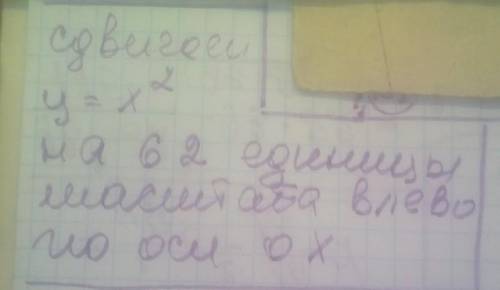 сдвигаем
y = x²
на 62 единицы
масштаба влево
по оси ox